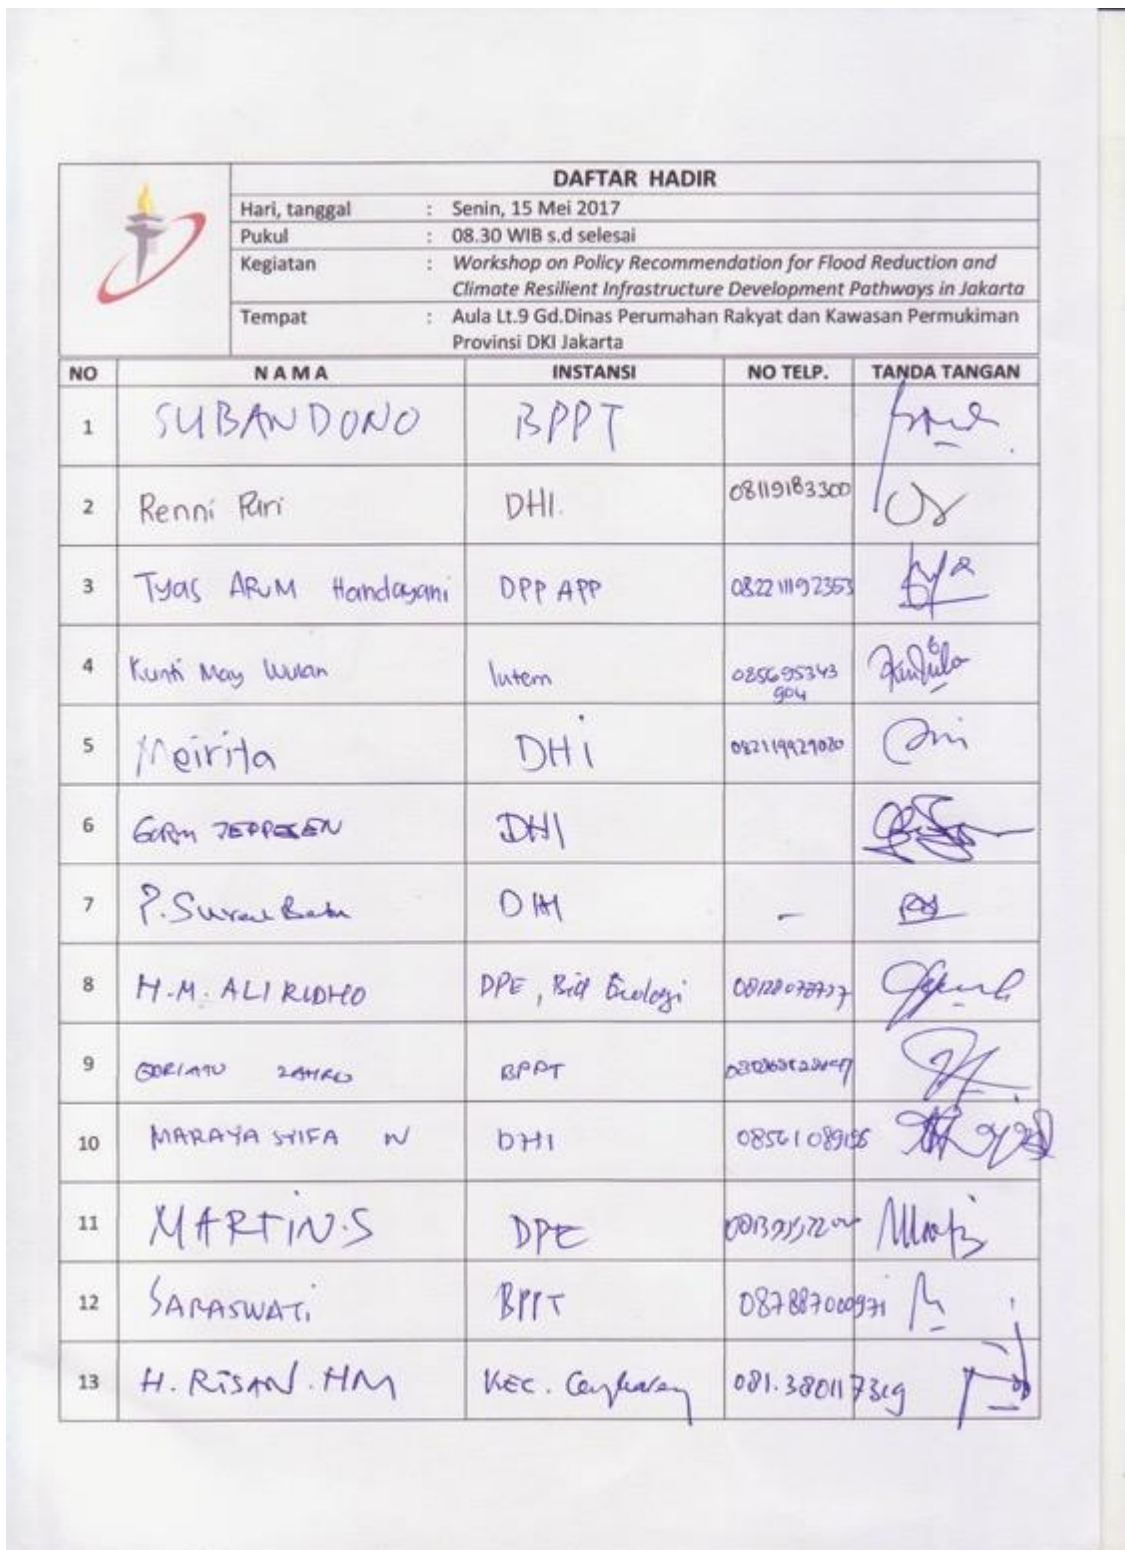 DAFTAR HADIR
Hari, tanggal : Senin, 15 Mei 2017
Pukul : 08.30 WIB s.d selesai
Kegiatan : Workshop on Policy Recommendation for Flood Reduction and
Climate Resilient Infrastructure Development Pathways in Jakarta
Tempat : Aula Lt.9 Gd.Dinas Perumahan Rakyat dan Kawasan Permukiman
Provinsi DKI Jakarta
NO NAMA INSTANSI NO TELP. TANDA TANGAN
1 SUBANDONO BPPT
2 Renni Puri DHI. 08119183300
3 Tyas ARUM Handayani DPP APP 082211192353
4 Kunti May Wulan 085695343
904
5 Meirita DHI
6 GORM JEPPESEN DHI
7 P. Suresh Babu DHI -
8 H.M. ALI RIDHO DPE, Bid
9 BPPT
10 MARAYA SYIFA N DHI
11 MARTIN.S DPE
12 SARASWATI BPPT 087887000971
13 H. RISAN. HM KEC. Cengkareng